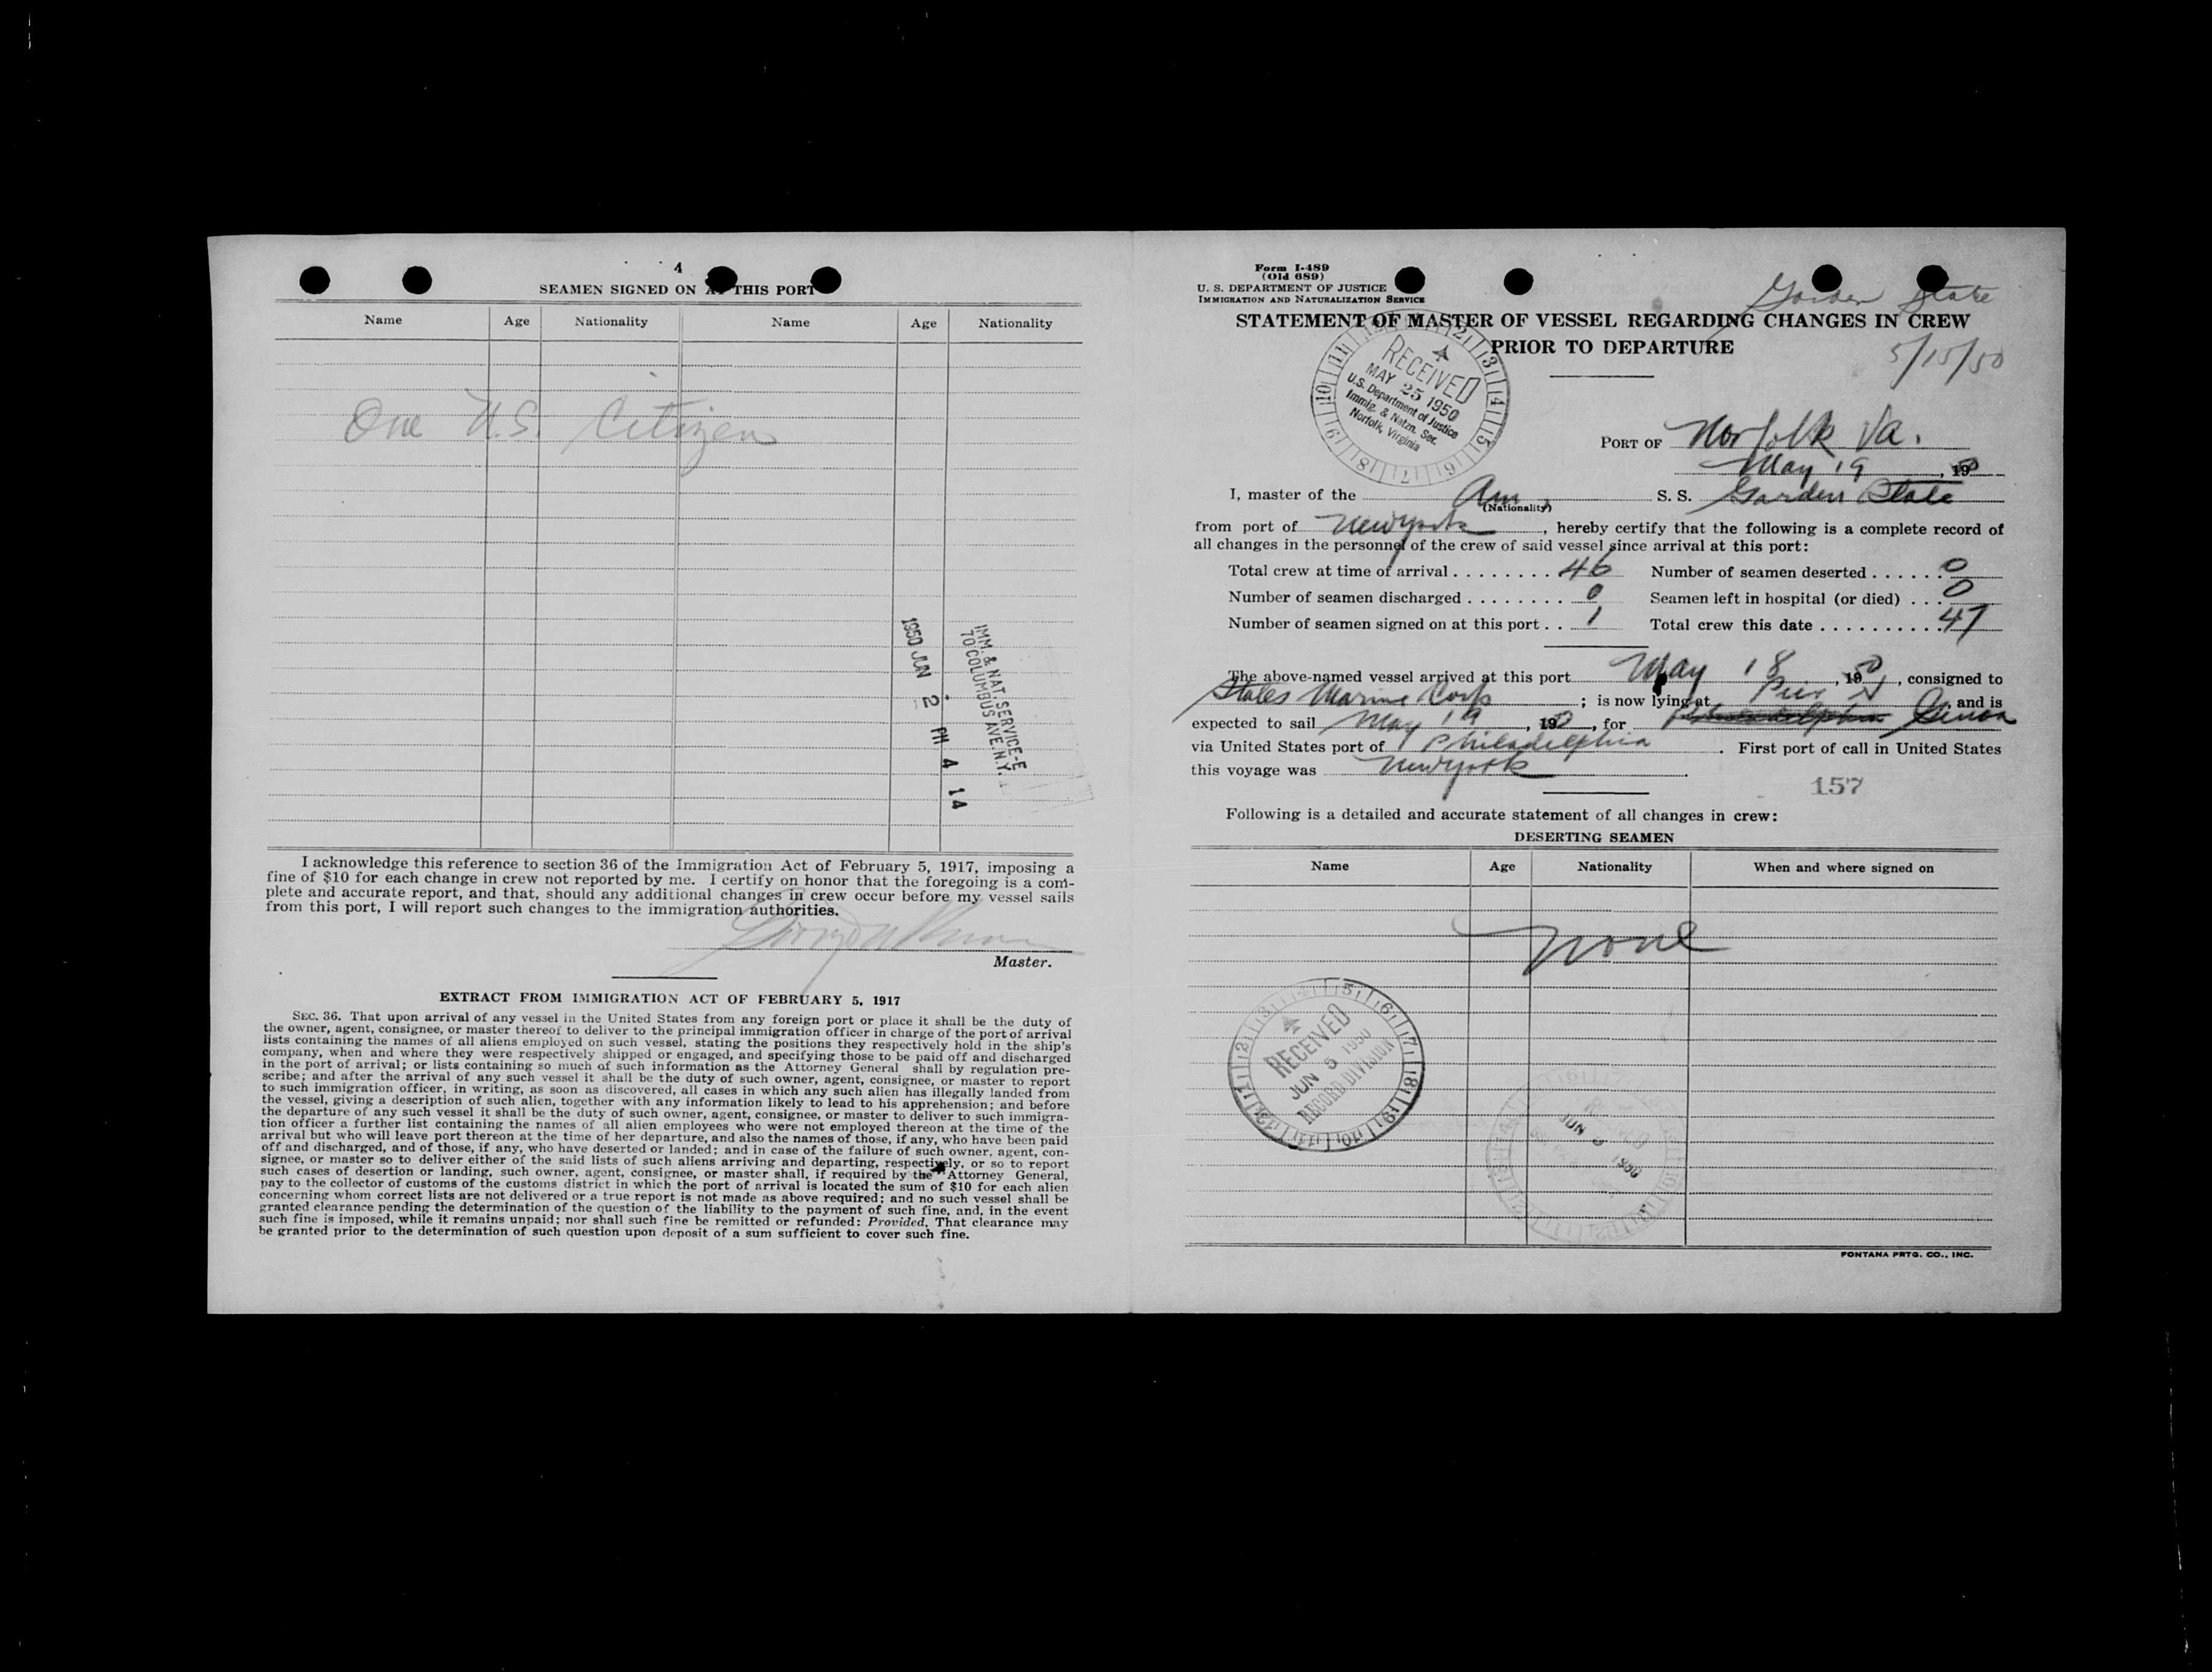 4
SEAMEN SIGNED ON AT THIS PORT
Name Age Nationality Name Age Nationality
One U.S. Citizen
IMM. & NAT. SERVICE-E
70 COLUMBUS AVE. N.Y.
1950 JUN 2 PM 4 14
I acknowledge this reference to section 36 of the Immigration Act of February 5, 1917, imposing a
fine of $10 for each change in crew not reported by me. I certify on honor that the foregoing is a com-
plete and accurate report, and that, should any additional changes in crew occur before my vessel sails
from this port, I will report such changes to the immigration authorities.
Master.
EXTRACT FROM IMMIGRATION ACT OF FEBRUARY 5, 1917
SEC. 36. That upon arrival of any vessel in the United States from any foreign port or place it shall be the duty of
the owner, agent, consignee, or master thereof to deliver to the principal immigration officer in charge of the port of arrival
lists containing the names of all aliens employed on such vessel, stating the positions they respectively hold in the ship's
company, when and where they were respectively shipped or engaged, and specifying those to be paid off and discharged
in the port of arrival; or lists containing so much of such information as the Attorney General shall by regulation pre-
scribe; and after the arrival of any such vessel it shall be the duty of such owner, agent, consignee, or master to report
to such immigration officer, in writing, as soon as discovered, all cases in which any such alien has illegally landed from
the vessel, giving a description of such alien, together with any information likely to lead to his apprehension; and before
the departure of any such vessel it shall be the duty of such owner, agent, consignee, or master to deliver to such immigra-
tion officer a further list containing the names of all alien employees who were not employed thereon at the time of the
arrival but who will leave port thereon at the time of her departure, and also the names of those, if any, who have been paid
off and discharged, and of those, if any, who have deserted or landed; and in case of the failure of such owner, agent, con-
signee, or master so to deliver either of the said lists of such aliens arriving and departing, respectively, or so to report
such cases of desertion or landing, such owner, agent, consignee, or master shall, if required by the Attorney General,
pay to the collector of customs of the customs district in which the port of arrival is located the sum of $10 for each alien
concerning whom correct lists are not delivered or a true report is not made as above required; and no such vessel shall be
granted clearance pending the determination of the question of the liability to the payment of such fine, and, in the event
such fine is imposed, while it remains unpaid; nor shall such fine be remitted or refunded: Provided, That clearance may
be granted prior to the determination of such question upon deposit of a sum sufficient to cover such fine.
Form I-489
(Old 689)
U. S. DEPARTMENT OF JUSTICE
IMMIGRATION AND NATURALIZATION SERVICE
Garden State
STATEMENT OF MASTER OF VESSEL REGARDING CHANGES IN CREW
PRIOR TO DEPARTURE
5/15/50
RECEIVED
MAY 25 1950
U.S. Department of Justice
Immig. & Natzn. Ser.
Norfolk, Virginia
PORT OF Norfolk Va.
May 19, 1950
I, master of the Am. S. S. Garden State
(Nationality)
from port of New York, hereby certify that the following is a complete record of
all changes in the personnel of the crew of said vessel since arrival at this port:
Total crew at time of arrival ........ 46 Number of seamen deserted ...... 0
Number of seamen discharged ......... 0 Seamen left in hospital (or died) ... 0
Number of seamen signed on at this port .. 1 Total crew this date .......... 47
The above-named vessel arrived at this port May 18, 1950, consigned to
States Marine Corp; is now lying at Pier N, and is
expected to sail May 19, 1950, for Genoa
via United States port of Philadelphia. First port of call in United States
this voyage was New York.
157
Following is a detailed and accurate statement of all changes in crew:
DESERTING SEAMEN
Name Age Nationality When and where signed on
None
RECEIVED
JUN 5 1950
RECORD DIVISION
JUN 1950
FONTANA PRTG. CO., INC.